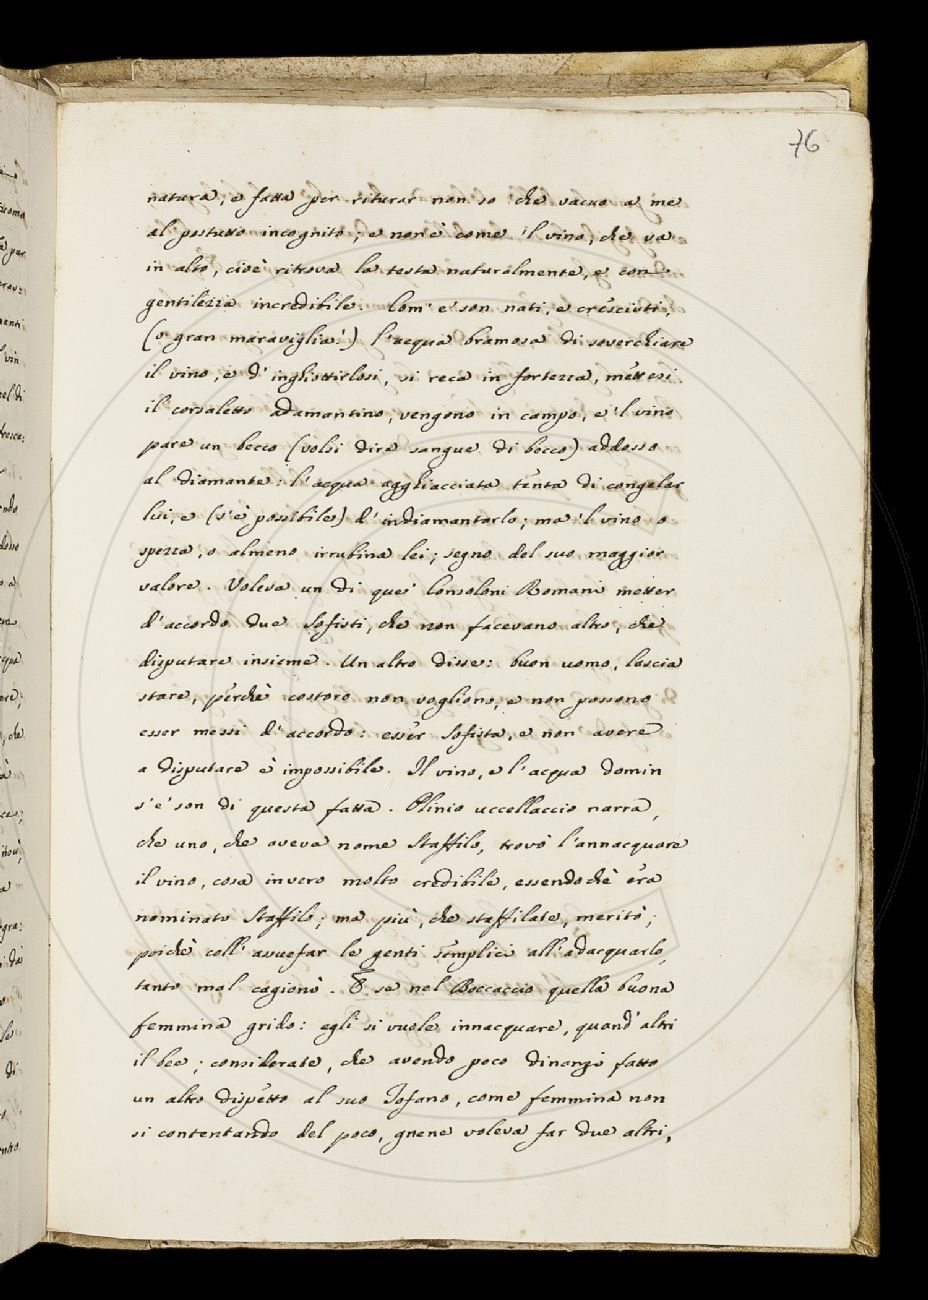 76
natura, e fatta per riturar non so che vacuo a me
al postutto incognito, e non è come 'l vino, che va
in alto, cioè ritrova la testa naturalmente, e con
gentilezza incredibile. Com' e' son nati, e cresciuti,
(o gran maraviglia!) l'acqua bramosa di soverchiare
il vino, e d' inghiottirlosi, si reca in fortezza, mettesi
il corsaletto adamantino, vengono in campo, e 'l vino
pare un becco (volsi dire sangue di becco) addosso
al diamante: l'acqua agghiacciata tenta di congelar
lui, e (s'è possibile) d' indiamantarlo; ma 'l vino o
spezza, o almeno irrubina lei; segno del suo maggior
valore. Voleva un di que' Consoloni Romani metter
d'accordo due Sofisti, che non facevano altro, che
disputare insieme. Un altro disse: buon uomo, lascia
stare, perchè costoro non vogliono, e non possono
esser messi d'accordo: esser Sofista, e non avere
a disputare è impossibile. Il vino, e l'acqua domin
s'e' son di questa fatta. Plinio uccellaccio narra,
che uno, che aveva nome Staffilo, trovò l'annacquare
il vino, cosa invero molto credibile, essendochè era
nominato Staffilo; ma più, che staffilate, meritò;
poichè coll' avvefar le genti semplici all' adacquarlo,
tanto mal cagionò. E se nel Boccaccio quella buona
femmina gridò: egli si vuole innacquare, quand' altri
il bee; considerate, che avendo poco dinanzi fatto
un altro dispetto al suo Tofano, come femmina non
si contentando del poco, gnene voleva far due altri,